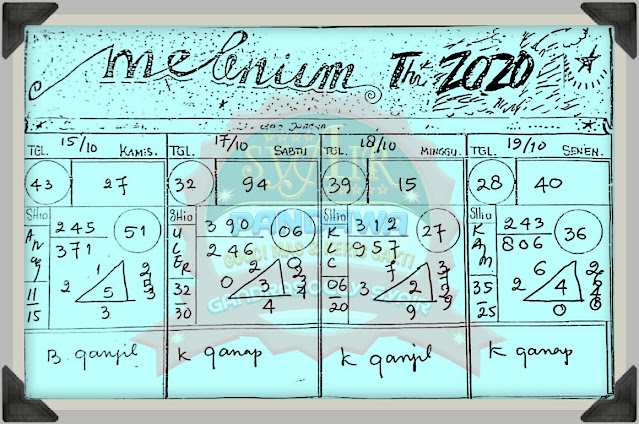 melenium Thn 2020
TGL. 15/10 KAMIS.
43 27
SHIO
245
371
51
11
15
1
2 5
3
B ganjil
TGL. 17/10 SABTU
32 94
SHIO
ULER
390
246
06
32
30
2
0 3
4
K ganap
TGL. 18/10 MINGGU.
39 15
SHIO
312
957
27
06
20
7
3 2
9
K ganjil
TGL. 19/10 SENEN.
28 40
SHIO
KAM
243
806
36
35
25
6
2 4
0
K ganap
SYAIR
PANGAWA